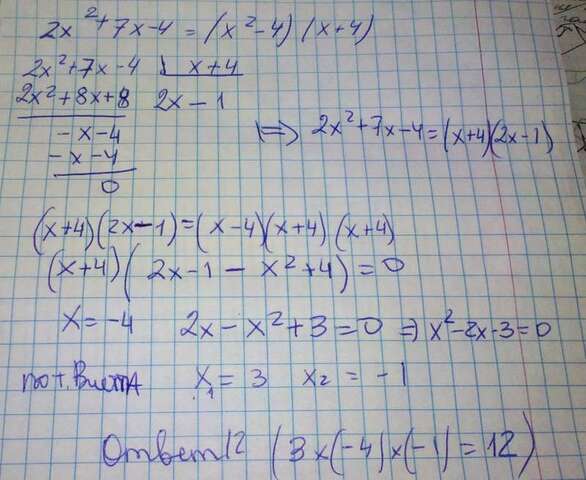 2x²+7x-4 = (x²-4) (x+4)
2x²+7x-4 | x+4
2x²+8x+8 2x-1
-x-4
-x-4
0
=> 2x²+7x-4=(x+4)(2x-1)
(x+4)(2x-1)=(x-4)(x+4)(x+4)
(x+4)(2x-1-x²+4)=0
x=-4 2x-x²+3=0 => x²-2x-3=0
по т. Виета x₁=3 x₂=-1
Ответ 12 (3x(-4)x(-1)=12)